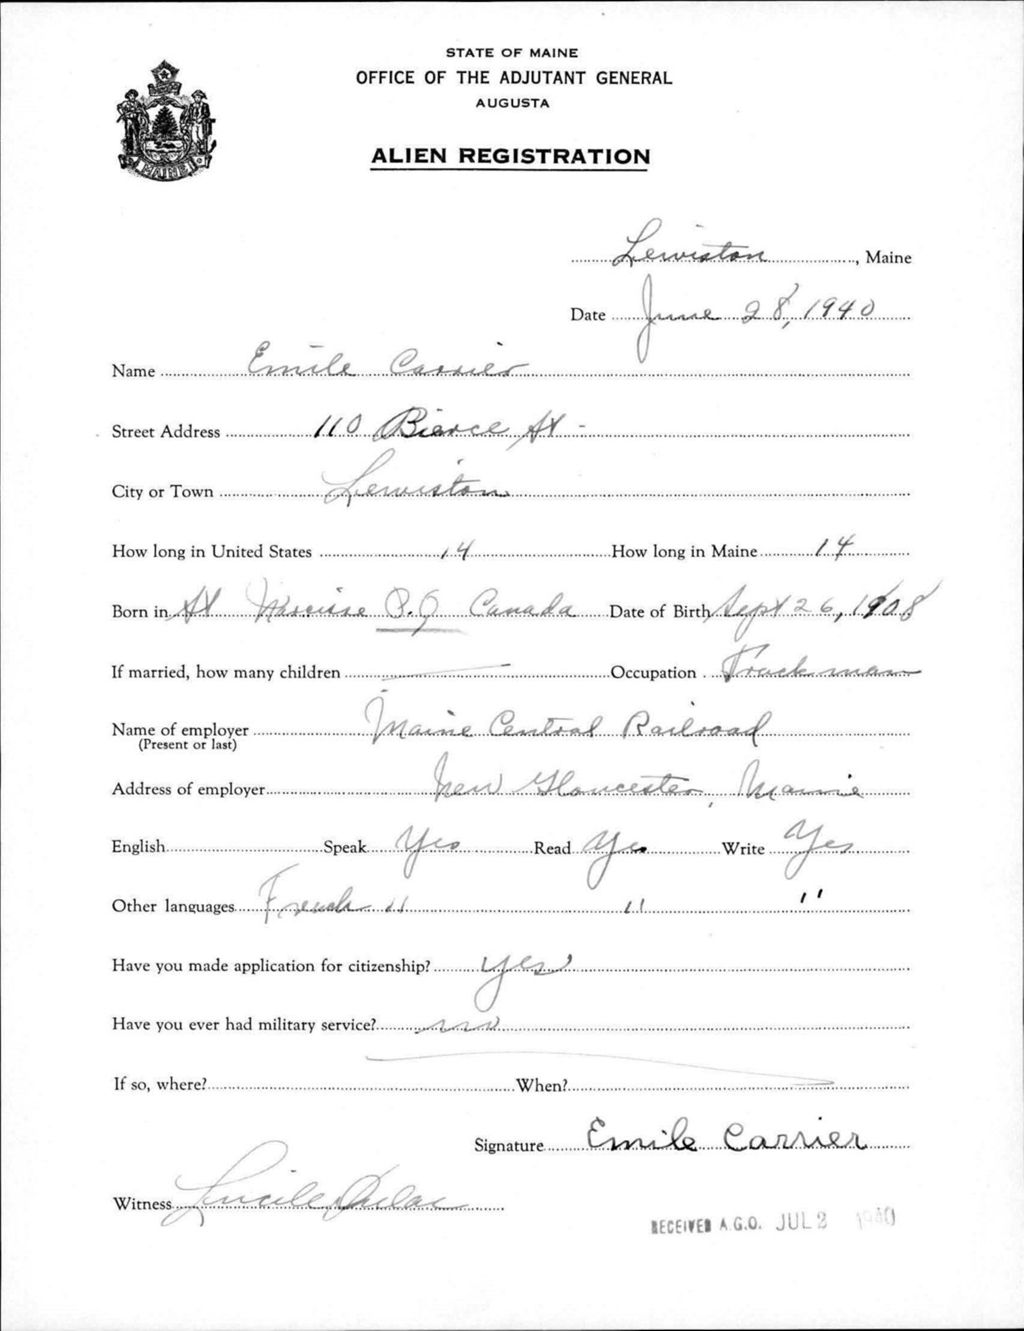 STATE OF MAINE
OFFICE OF THE ADJUTANT GENERAL
AUGUSTA
ALIEN REGISTRATION
MAINE
Lewiston, Maine
Date June 28, 1940
Name Emile Carrier
Street Address 110 Pierce St -
City or Town Lewiston
How long in United States 14 How long in Maine 14
Born in St Narcisse P.Q Canada Date of Birth Sept 26, 1908
If married, how many children — Occupation Trackman
Name of employer Maine Central Railroad
(Present or last)
Address of employer New Gloucester, Maine
English Speak Yes Read Yes Write Yes
Other languages French " " "
Have you made application for citizenship? yes
Have you ever had military service? no
If so, where? When?
Signature Emile Carrier
Witness Lucile
RECEIVED A.G.O. JUL 2 1940